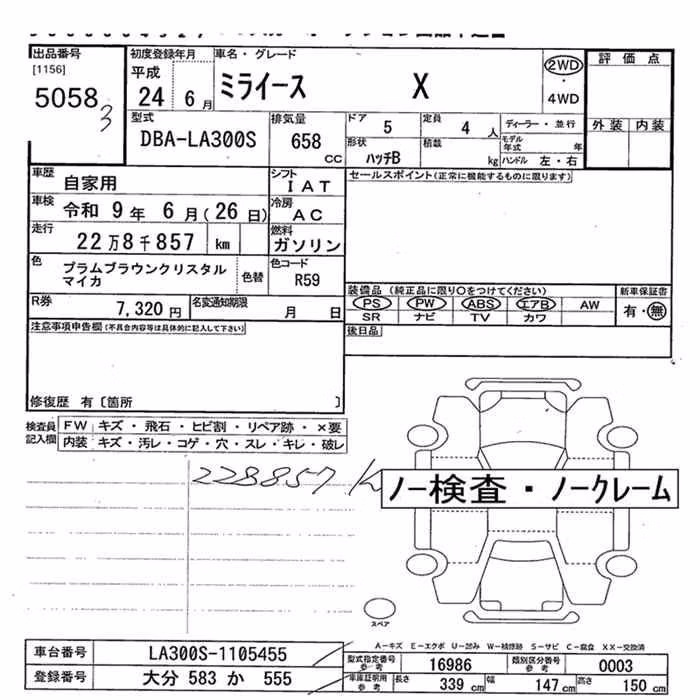 出品番号
[1156]
5058
3
初度登録年月
平成
24 6月
車名・グレード
ミライース X
2WD
・
4WD
評価点
外装 内装
型式
DBA-LA300S
排気量
658
CC
ドア 5
定員 4人
ディーラー・並行
形状
ハッチB
積載 kg
モデル年式 年
ハンドル 左・右
車歴
自家用
シフト
IAT
セールスポイント(正常に機能するものに限ります)
車検
令和 9年 6月(26日)
冷房
AC
走行
22万8千857 km
燃料
ガソリン
色
プラムブラウンクリスタル
マイカ
色替
色コード
R59
装備品(純正品に限り○をつけてください)
新車保証書
PS PW ABS エアB AW
有・無
SR ナビ TV カワ
R券
7,320円
名変通知期限
月 日
後日品
注意事項申告欄(不具合内容等は具体的に記入して下さい)
修復歴 有〔箇所 〕
検査員
記入欄
FW キズ・飛石・ヒビ割・リペア跡・×要
内装 キズ・汚レ・コゲ・穴・スレ・キレ・破レ
228857
ノー検査・ノークレーム
スペア
A-キズ E-エクボ U-凹み W-補修跡 S-サビ C-腐食 XX-交換済
車台番号
LA300S-1105455
型式指定番号
参考
16986
類別区分番号
参考
0003
登録番号
大分 583 か 555
車庫証明用
参考
長さ 339 cm
幅 147 cm
高さ 150 cm